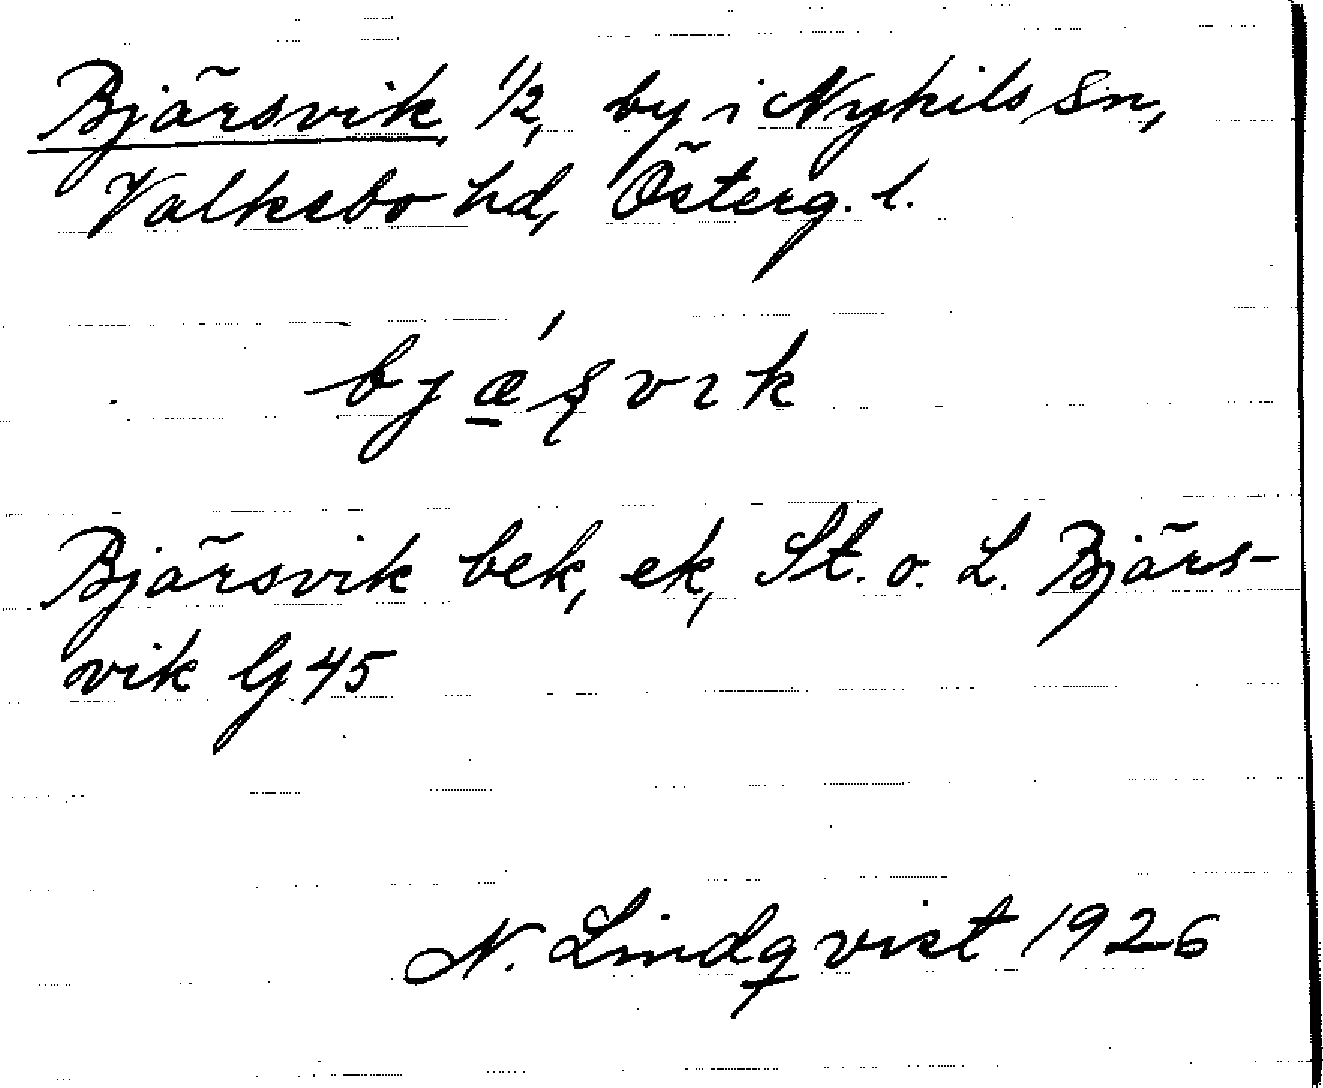 Bjärsvik 1/2, by i Nykils sn,
Valkebo hd, Österg. l.
bjǽ̠ʂvık
Bjärsvik bek, ek, St. o. L. Bjärs-
vik G 45
N. Lindqvist 1926